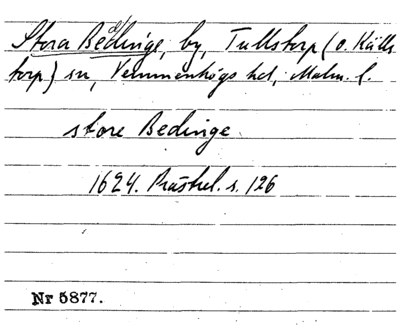 Stora Beddinge, by, Tullstorp (o. Källs
torp) sn, Vemmenhögs hd, Malm. l.
store Bedinge
1624. Präsrel. s. 126
Nr 5877.